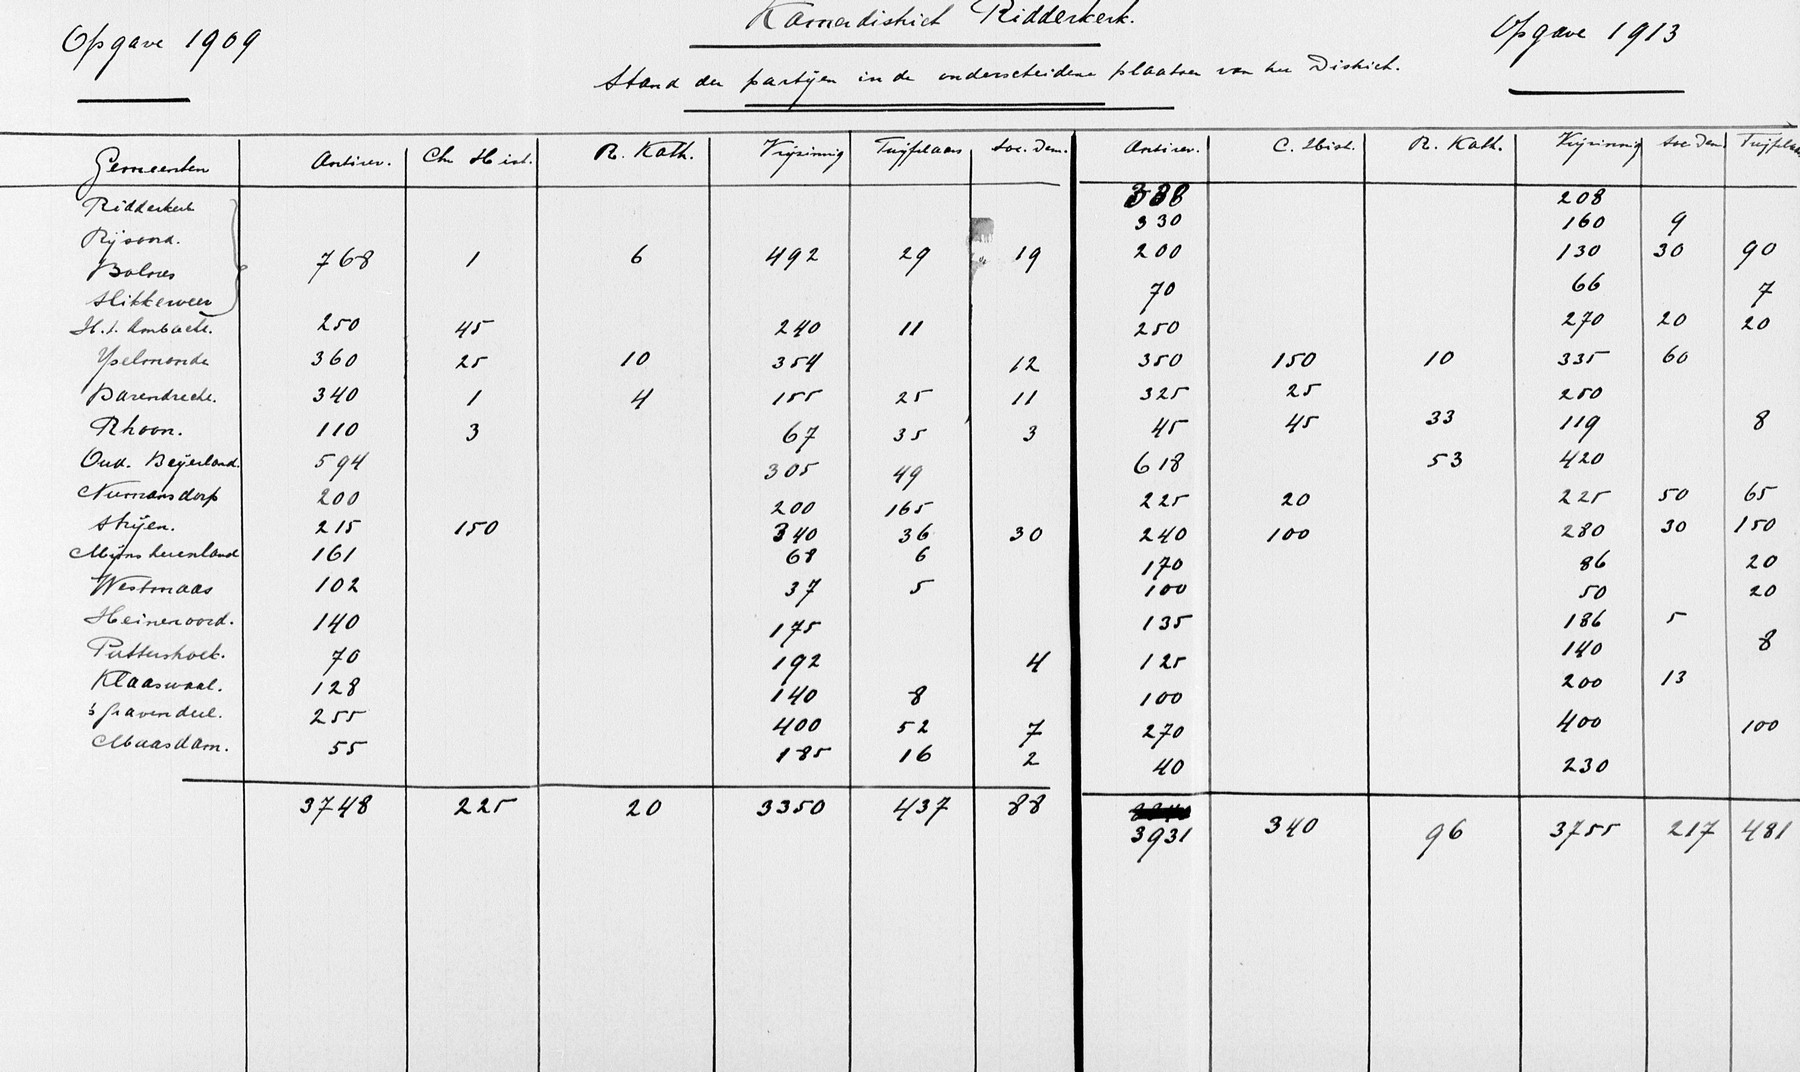 Opgave 1909
Kamerdistrict Ridderkerk.
Opgave 1913
Stand der partijen in de onderscheidene plaatsen van het District.
Gemeenten Antirev. Chr Hist. R. Kath. Vrijzinnig Twijfelaars Soc. Dem. Antirev. C. Hist. R. Kath. Vrijzinnig Soc Dem Twijfelaars
Ridderkerk 338 208
Rijsoord. 330 160 9
Bolnes 768 1 6 492 29 19 200 130 30 90
Slikkerveer 70 66 7
H.I. Ambacht. 250 45 240 11 250 270 20 20
Yselmonde 360 25 10 354 12 350 150 10 335 60
Barendrecht. 340 1 4 155 25 11 325 25 250
Rhoon. 110 3 67 35 3 45 45 33 119 8
Oud. Beijerland. 594 305 49 618 53 420
Numansdorp 200 200 165 225 20 225 50 65
Strijen. 215 150 340 36 30 240 100 280 30 150
Mijnsheerenland 161 68 6 170 86 20
Westmaas 102 37 5 100 50 20
Heinenoord. 140 175 135 186 5
Puttershoek. 70 192 4 125 140 8
Klaaswaal. 128 140 8 100 200 13
's Gravendeel. 255 400 52 7 270 400 100
Maasdam. 55 185 16 2 40 230
3748 225 20 3350 437 88 3931 340 96 3755 217 481